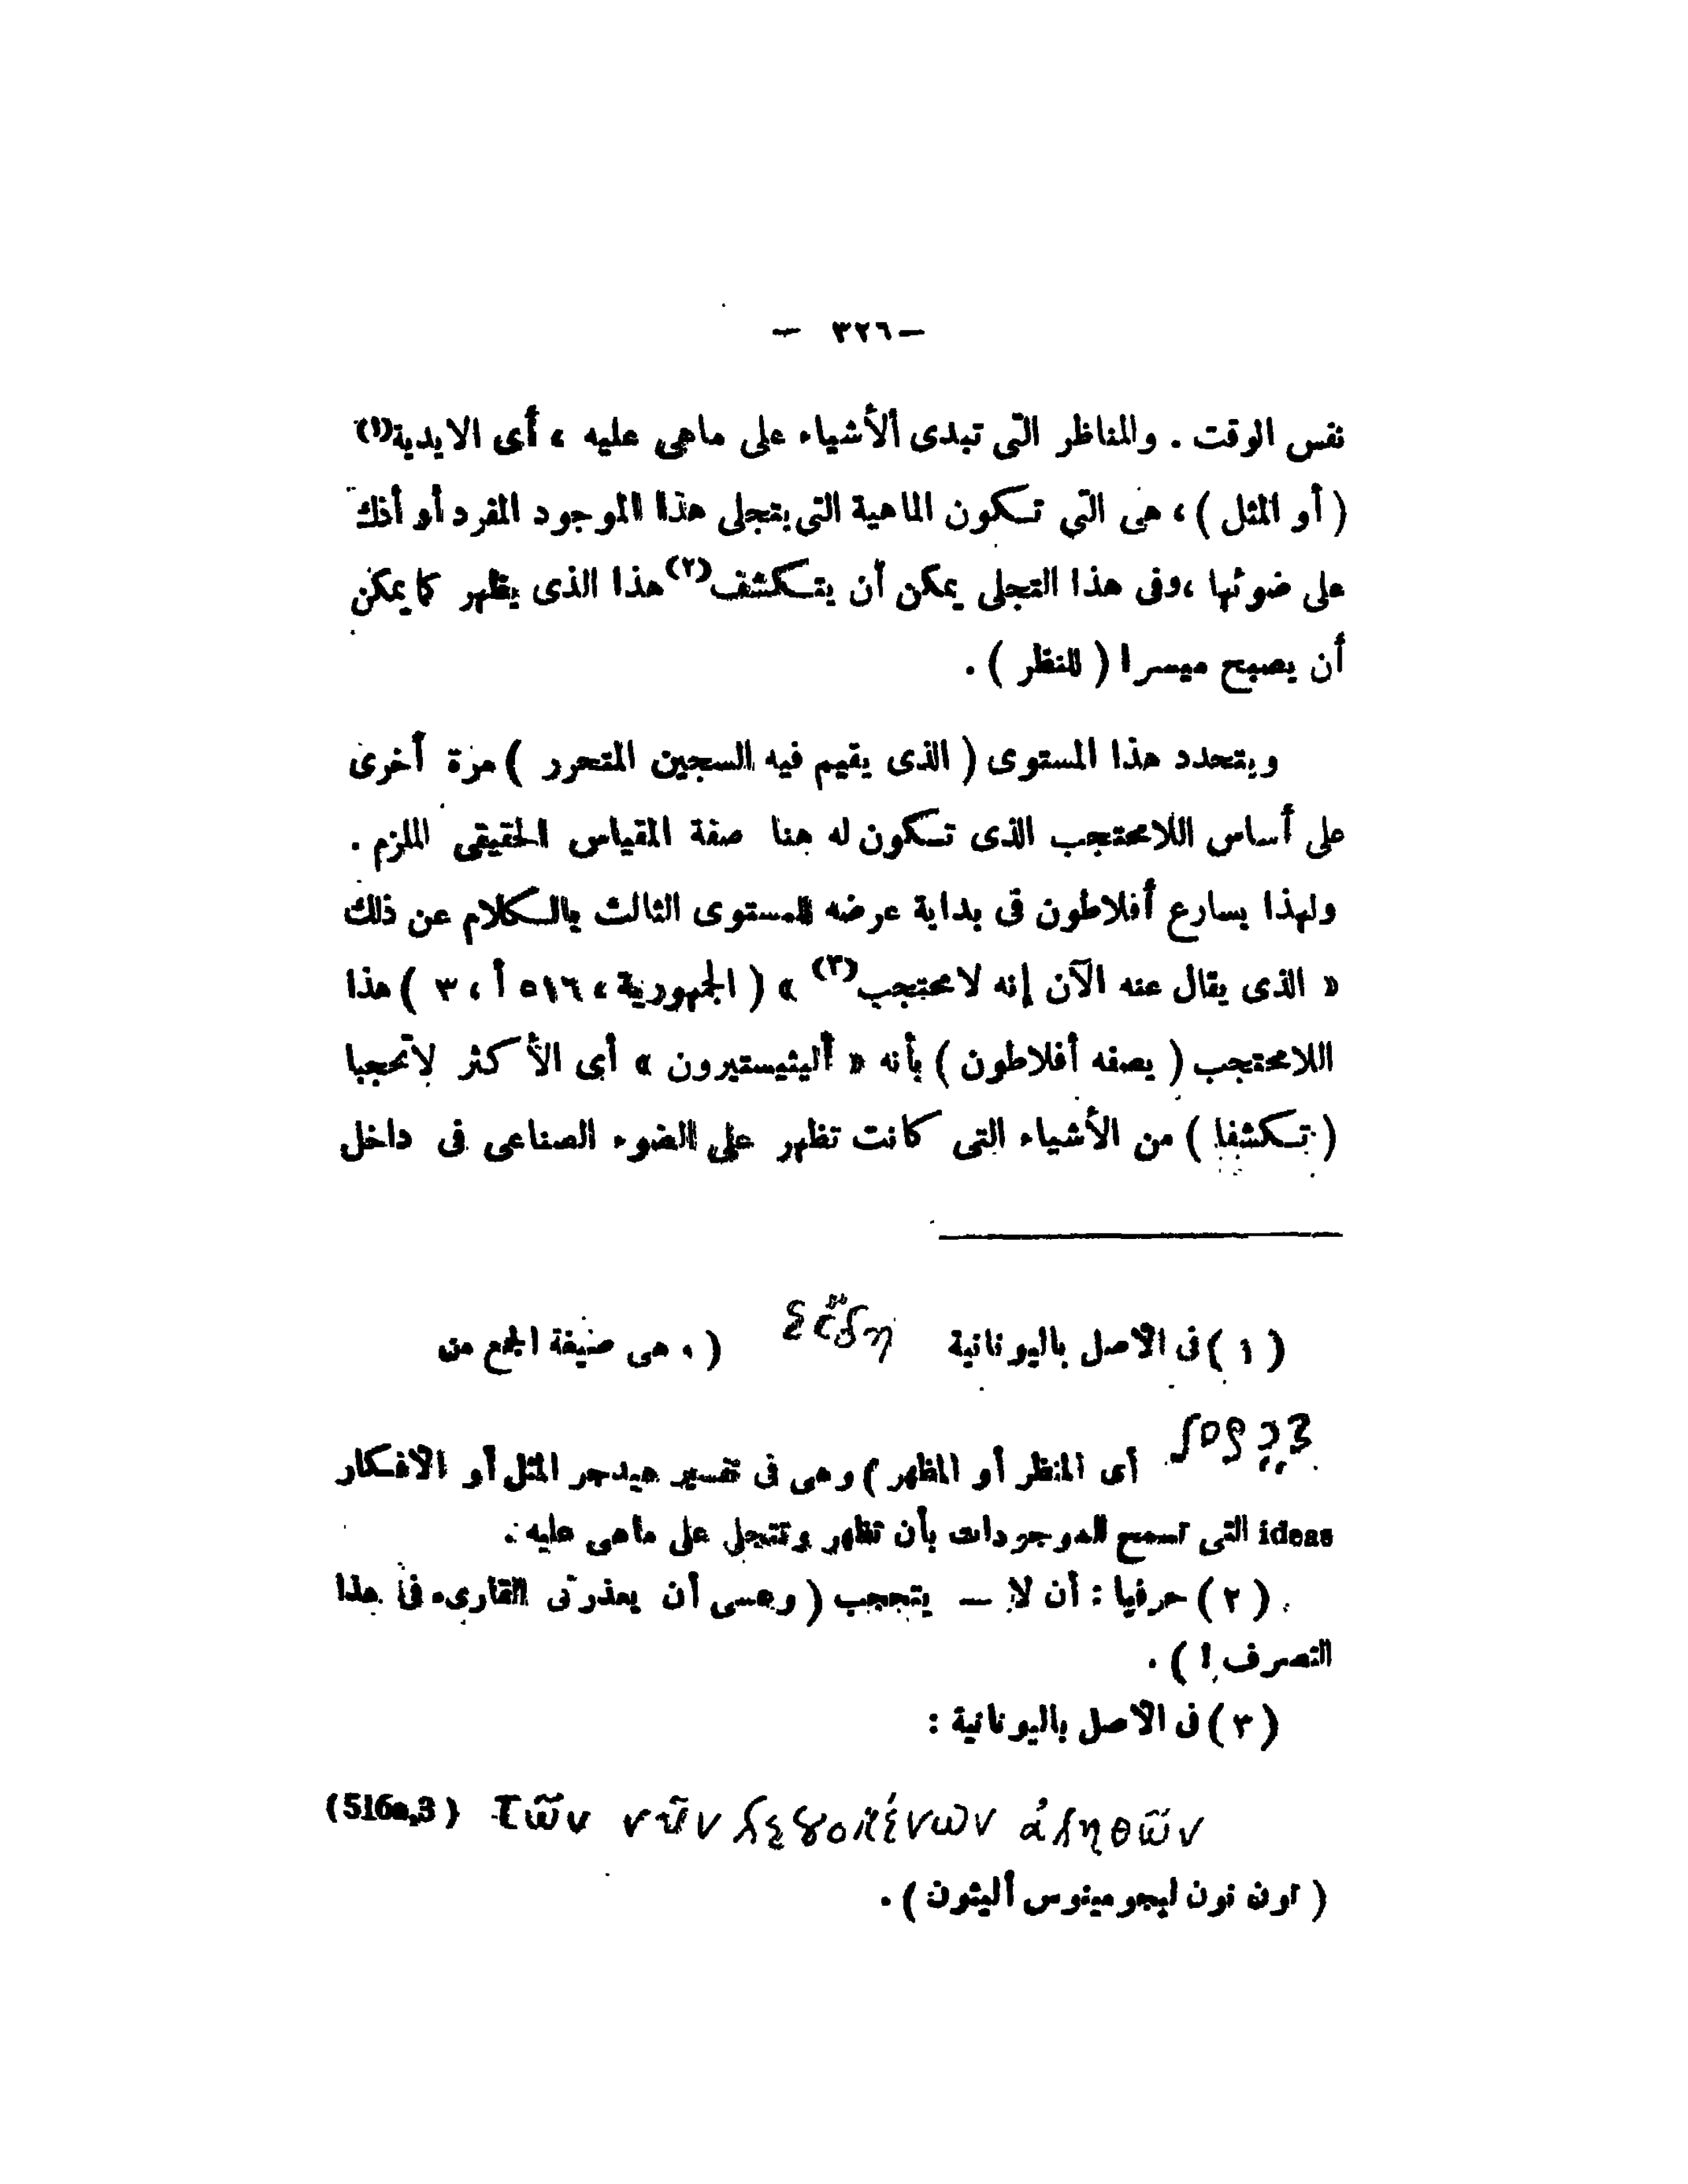 — ٣٢٦ —
نفس الوقت . والمناظر التى تبدى الأشياء على ماهى عليه ، أى الايدية(١)
( أو المثل ) ، هى التى تـكون الماهية التى يتجلى هذا الموجود المفرد أو أذك
على ضوئها ،وفى هذا التجلى يمكن أن يتـكشف(٢) هذا الذى يظهر كما يمكن
أن يصبح ميسرا ( للنظر ) .
ويتحدد هذا المستوى ( الذى يقيم فيه السجين المتحرر ) مرة أخرى
على أساس اللامحتجب الذى تـكون له هنا صفة المقياس الحقيقى الملزم .
ولهذا يسارع أفلاطون فى بداية عرضه للمستوى الثالث بالـكلام عن ذلك
« الذى يقال عنه الآن إنه لامحتجب(٣) » ( الجمهورية ، ٥١٦ أ ، ٣ ) هذا
اللامحتجب ( يصفه أفلاطون ) بأنه « أليثيستيرون » أى الأكثر لاتحجبا
( تـكشفا ) من الأشياء التى كانت تظهر على الضوء الصناعى فى داخل
( ١ ) فى الأصل باليونانية εἴδη ( ، هى صيغة الجمع من
أى المنظر أو المظهر ) وهى فى تفسير هيدجر المثل أو الأفـكار
ideas التى تسمح للموجودات بأن تظهر وتتجلى على ماهى عليه .
( ٢ ) حرفيا : أن لا — يتحجب ( وعسى أن يعذرنى القارىء فى هذا
التصرف ! ) .
( ٣ ) فى الأصل باليونانية :
(516a,3) τῶν νῦν λεγομένων ἀληθῶν
( تون نون ليجومينوس أليثون ) .